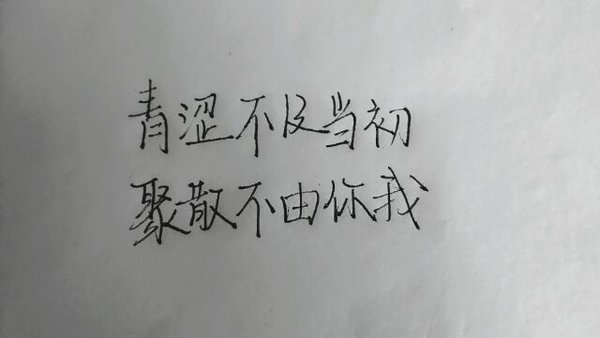 青涩不及当初
聚散不由你我